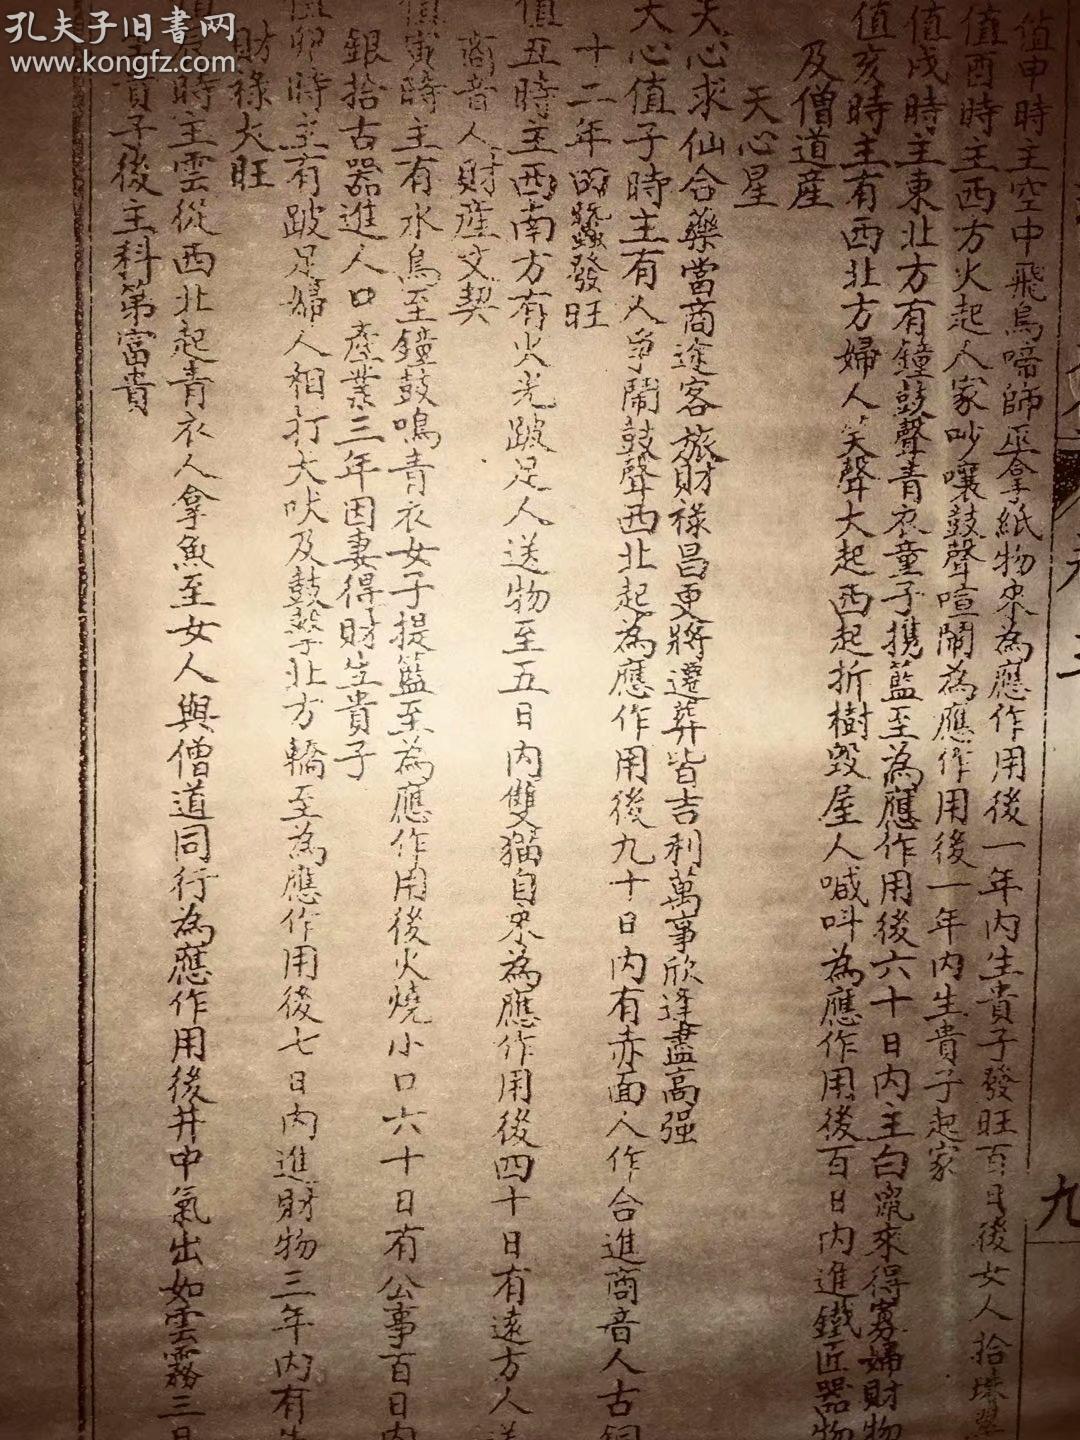 孔夫子旧書网
www.kongfz.com
值申時主空中飛鳥啼師巫拿紙物來為應作用後一年內生貴子發旺百日後女人拾珠翠
值酉時主西方火起人家吵嚷鼓聲喧鬧為應作用後一年內生貴子起家
值戌時主東北方有鐘鼓聲青衣童子携籃至為應作用後六十日內主白鼠來得寡婦財物
值亥時主有西北方婦人笑聲大起西起折樹毀屋人喊呌為應作用後百日內進鐵匠器物
及僧道産
天心星
天心求仙合藥當商途客旅財祿昌更將遷葬皆吉利萬事欣逢盡高强
天心值子時主有人爭鬧鼓聲西北起為應作用後九十日內有赤面人作合進商音人古銅
十二年的蠶發旺
值丑時主西南方有火光跛足人送物至五日內雙猫自來為應作用後四十日有遠方人送
商音人財産文契
值寅時主有水鳥至鐘鼓鳴青衣女子提籃至為應作用後火燒小口六十日有公事百日內
銀拾古器進人口產業三年因妻得財生貴子
值卯時主有跛足婦人相打犬吠及鼓聲北方轎至為應作用後七日內進財物三年內有
財祿大旺
值辰時主雲從西北起青衣人拿魚至女人與僧道同行為應作用後井中氣出如雲霧三日
生貴子後主科第富貴
九